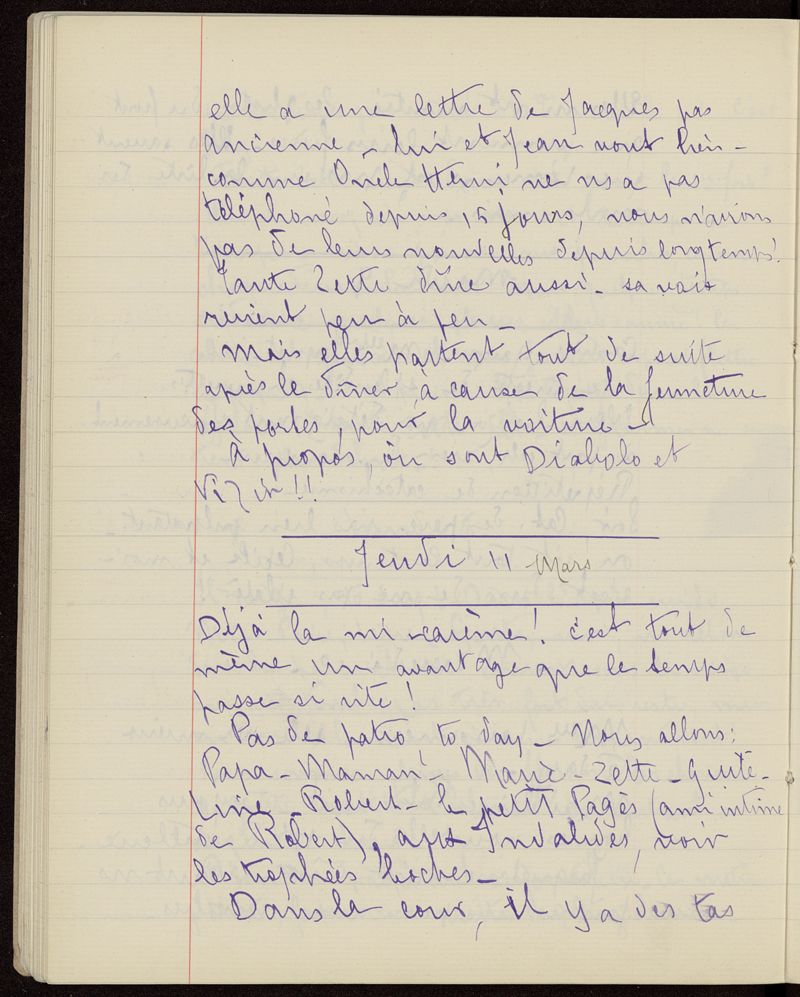 elle a une lettre de Jacques pas
ancienne - lui et Jean vont bien -
comme Oncle Henri ne ns a pas
téléphoné depuis 15 jours, nous n'avions
pas de leurs nouvelles depuis longtemps!
Tante Zette dîne aussi - sa voix
revient peu à peu -
Mais elles partent tout de suite
après le dîner, à cause de la fermeture
des portes, pour la voiture -
à propos, où sont Diabolo et
Vizir!!
Jeudi 11 Mars
Déjà la mi-carème! c'est tout de
même un avantage que le temps
passe si vite!
Pas de patro, to day - Nous allons:
Papa - Maman - Marie - Zette - Guite -
Line - Robert - le petit Pagès (ami intime
de Robert), aux Invalides, voir
les trophées boches -
Dans la cour, il y a des tas